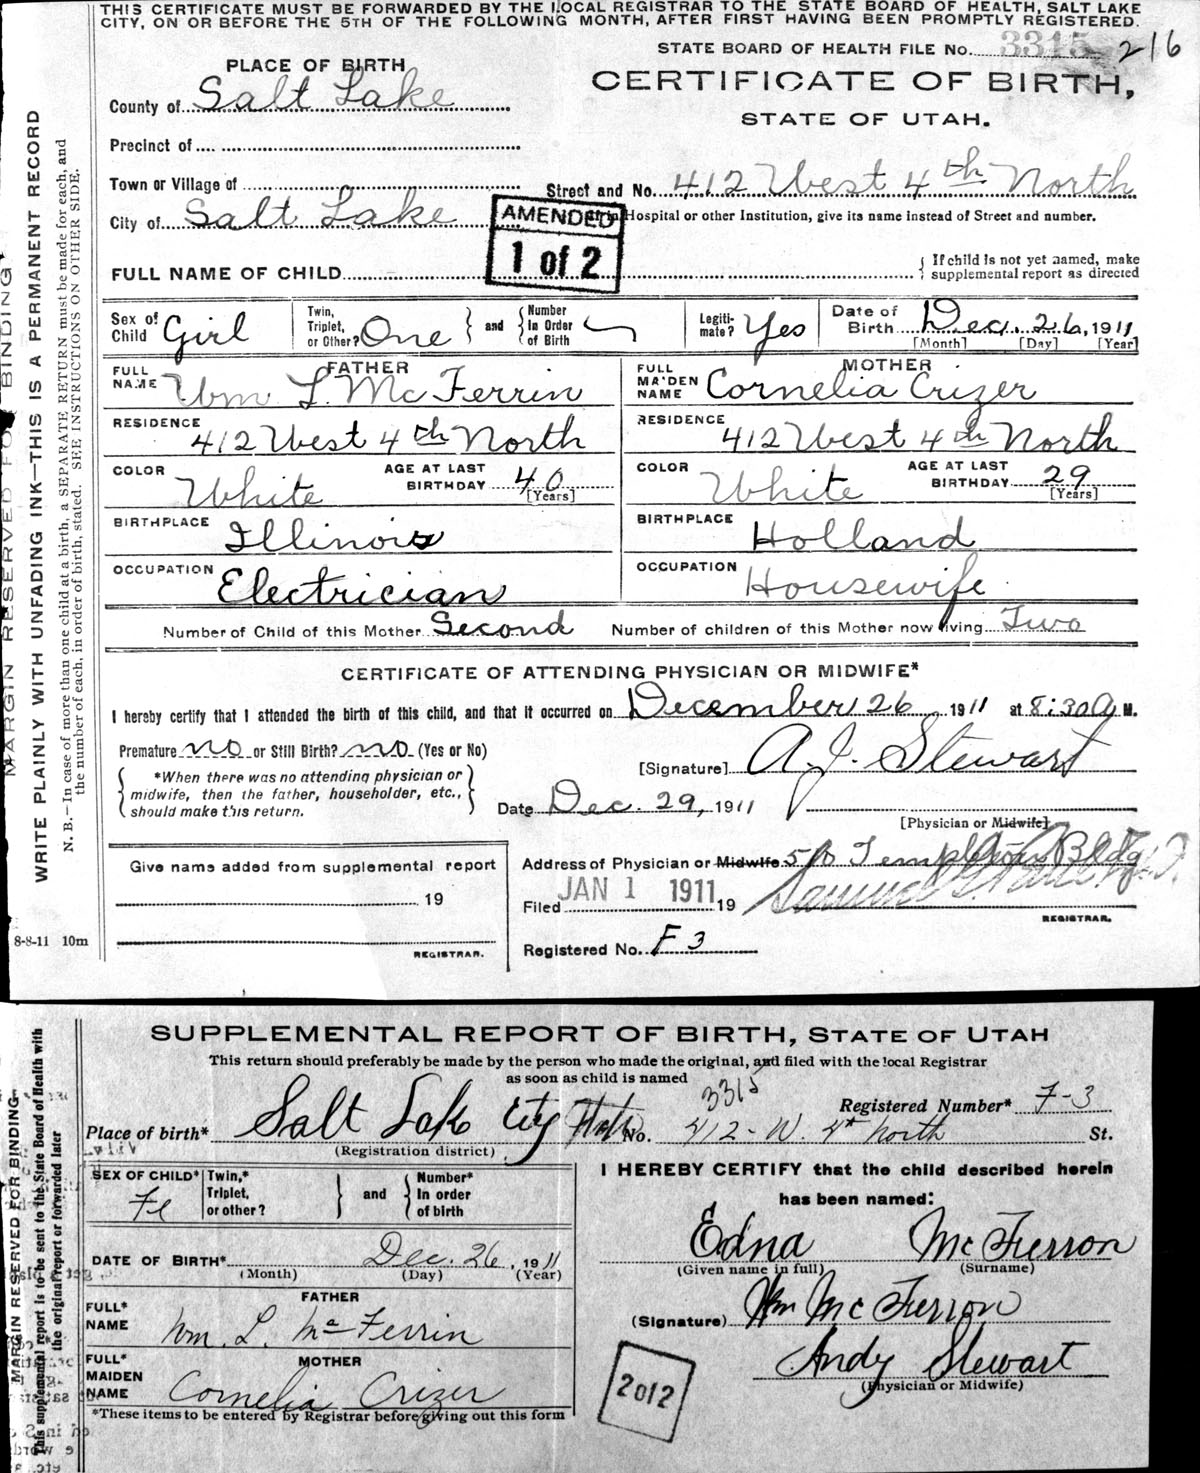 THIS CERTIFICATE MUST BE FORWARDED BY THE LOCAL REGISTRAR TO THE STATE BOARD OF HEALTH, SALT LAKE
CITY, ON OR BEFORE THE 5TH OF THE FOLLOWING MONTH, AFTER FIRST HAVING BEEN PROMPTLY REGISTERED.
STATE BOARD OF HEALTH FILE No. 3315 216
PLACE OF BIRTH
CERTIFICATE OF BIRTH,
STATE OF UTAH.
County of Salt Lake
Precinct of
Town or Village of
Street and No. 412 West 4th North
City of Salt Lake
Hospital or other Institution, give its name instead of Street and number.
AMENDED
1 of 2
FULL NAME OF CHILD
If child is not yet named, make
supplemental report as directed
Sex of Child Girl
Twin, Triplet, or Other? One
and
Number In Order of Birth
Legiti-mate? Yes
Date of Birth Dec. 26, 1911
[Month] [Day] [Year]
FATHER
FULL NAME Wm L. Mc Ferrin
MOTHER
FULL MAIDEN NAME Cornelia Crizer
RESIDENCE 412 West 4th North
RESIDENCE 412 West 4th North
COLOR White
AGE AT LAST BIRTHDAY 40 [Years]
COLOR White
AGE AT LAST BIRTHDAY 29 [Years]
BIRTHPLACE Illinois
BIRTHPLACE Holland
OCCUPATION Electrician
OCCUPATION Housewife
Number of Child of this Mother Second Number of children of this Mother now living Two
CERTIFICATE OF ATTENDING PHYSICIAN OR MIDWIFE*
I hereby certify that I attended the birth of this child, and that it occurred on December 26 1911 at 8:30 A M.
Premature no or Still Birth? no (Yes or No)
[Signature] A. J. Stewart
*When there was no attending physician or
midwife, then the father, householder, etc.,
should make this return.
Date Dec. 29, 1911
[Physician or Midwife]
Give name added from supplemental report
19
REGISTRAR.
Address of Physician or Midwife Templeton Bldg
Filed JAN 1 1911 19
REGISTRAR.
Registered No. F 3
8-8-11 10m
MARGIN RESERVED FOR BINDING
WRITE PLAINLY WITH UNFADING INK—THIS IS A PERMANENT RECORD
N. B.—In case of more than one child at a birth, a SEPARATE RETURN must be made for each, and
the number of each, in order of birth, stated. SEE INSTRUCTIONS ON OTHER SIDE.
SUPPLEMENTAL REPORT OF BIRTH, STATE OF UTAH
This return should preferably be made by the person who made the original, and filed with the local Registrar
as soon as child is named
3315
Registered Number* F-3
Place of birth* Salt Lake City No. 412 - W. 4th North St.
(Registration district)
SEX OF CHILD* Fe
Twin,* Triplet, or other?
and
Number* In order of birth
I HEREBY CERTIFY that the child described herein
has been named:
Edna McFerron
(Given name in full) (Surname)
DATE OF BIRTH* Dec. 26, 1911
(Month) (Day) (Year)
FATHER
FULL* NAME Wm. L. Mc Ferrin
(Signature) Wm McFerron
MOTHER
FULL* MAIDEN NAME Cornelia Crizer
Andy Stewart
(Physician or Midwife)
2012
*These items to be entered by Registrar before giving out this form
MARGIN RESERVED FOR BINDING
This supplemental report is to be sent to the State Board of Health with
the original report or forwarded later